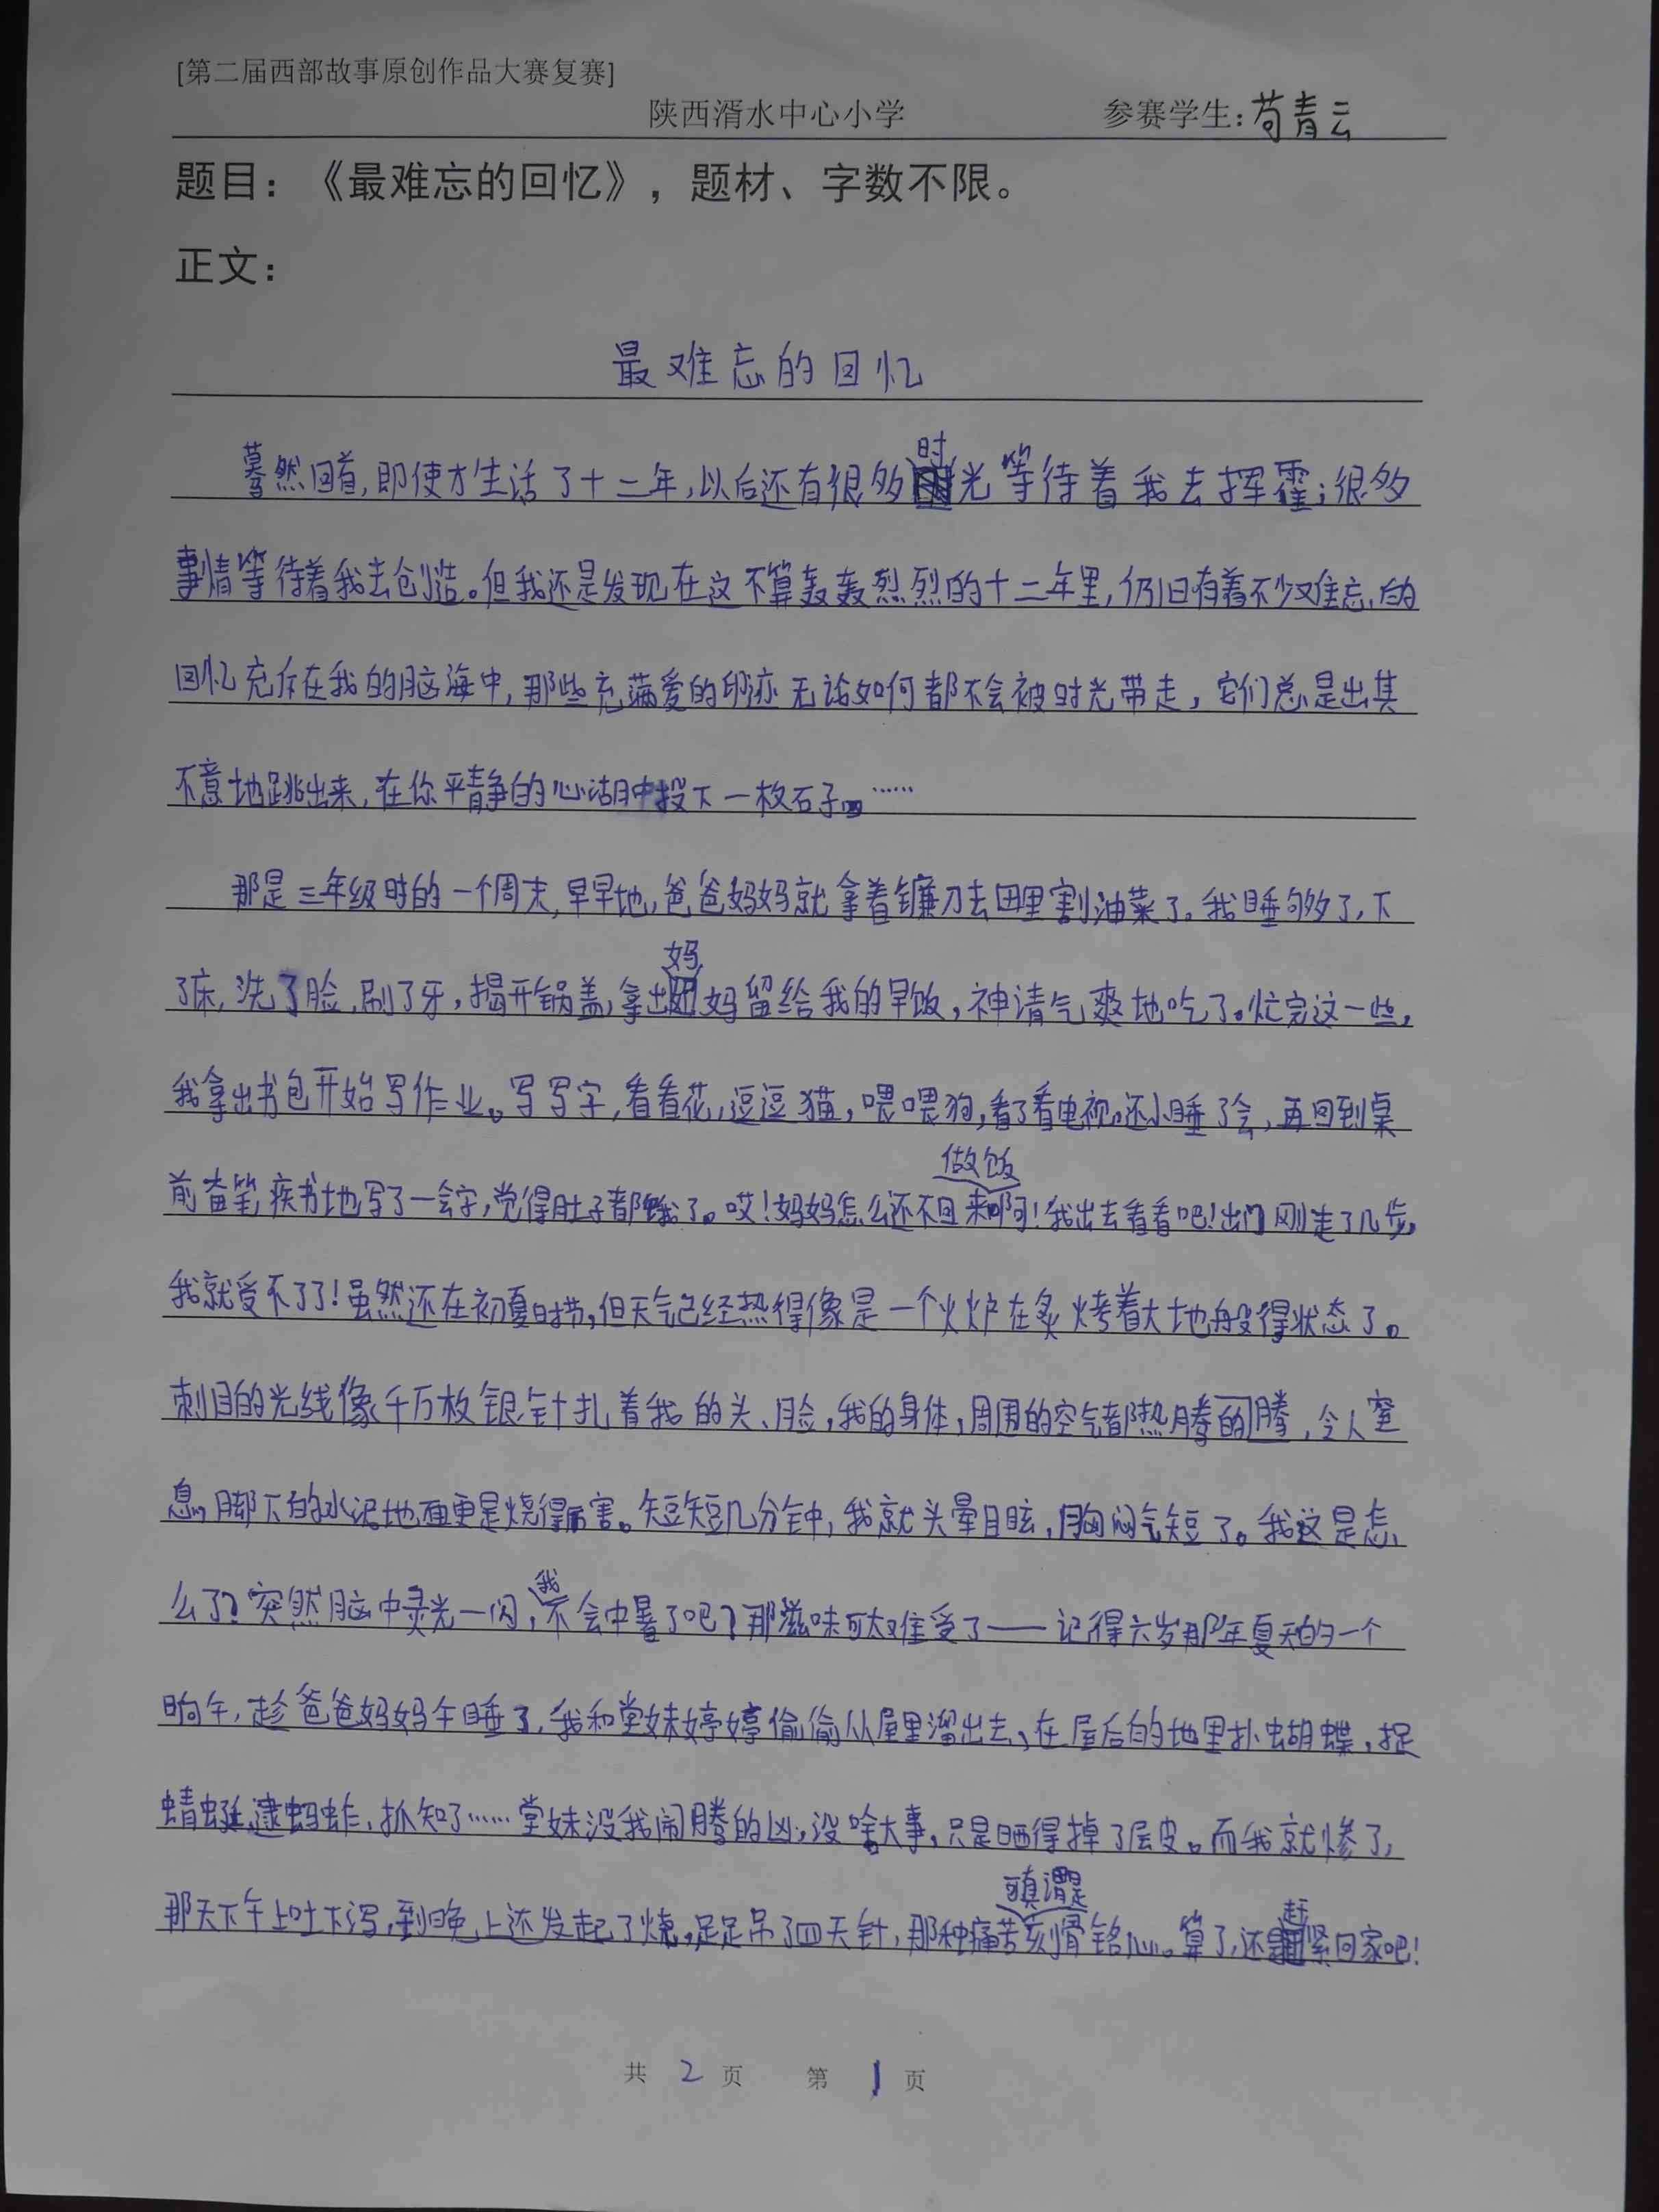 [第二届西部故事原创作品大赛复赛]
陕西湑水中心小学 参赛学生:苟青云
题目：《最难忘的回忆》，题材、字数不限。
正文：
最难忘的回忆
蓦然回首,即使才生活了十二年,以后还有很多时光等待着我去挥霍;很多
事情等待着我去创造。但我还是发现在这不算轰轰烈烈的十二年里,仍旧有着不少难忘的
回忆充斥在我的脑海中,那些充满爱的印迹无论如何都不会被时光带走，它们总是出其
不意地跳出来,在你平静的心湖中投下一枚石子……
那是三年级时的一个周末,早早地,爸爸妈妈就拿着镰刀去田里割油菜了。我睡够了,下
了床,洗了脸,刷了牙,揭开锅盖,拿出妈妈留给我的早饭,神请气爽地吃了。忙完这一些,
我拿出书包开始写作业。写写字,看看花,逗逗猫,喂喂狗,看了看电视。还小睡了会,再回到桌
前奋笔疾书地写了一会字,觉得肚子都饿了。哎!妈妈怎么还不回来做饭啊!我出去看看吧!出门刚走了几步,
我就受不了了!虽然还在初夏时节,但天气已经热得像是一个火炉在炙烤着大地般得状态了。
刺目的光线像千万枚银针扎着我的头、脸,我的身体,周围的空气都热腾腾,令人窒
息,脚下的水泥地面更是烧得厉害。短短几分钟,我就头晕目眩,胸闷气短了。我这是怎
么了?突然脑中灵光一闪,我不会中暑了吧?那滋味可太难受了——记得六岁那年夏天的一个
晌午,趁爸爸妈妈午睡了,我和堂妹婷婷偷偷从屋里溜出去,在屋后的地里扑蝴蝶,捉
蜻蜓,逮蚂蚱,抓知了……堂妹没我闹腾的凶,没啥大事,只是晒得掉了层皮。而我就惨了,
那天下午上吐下泻,到晚上还发起了烧,足足吊了四天针,那种痛苦可真谓是刻骨铭心。算了,还是赶紧回家吧!
共 2 页 第 1 页